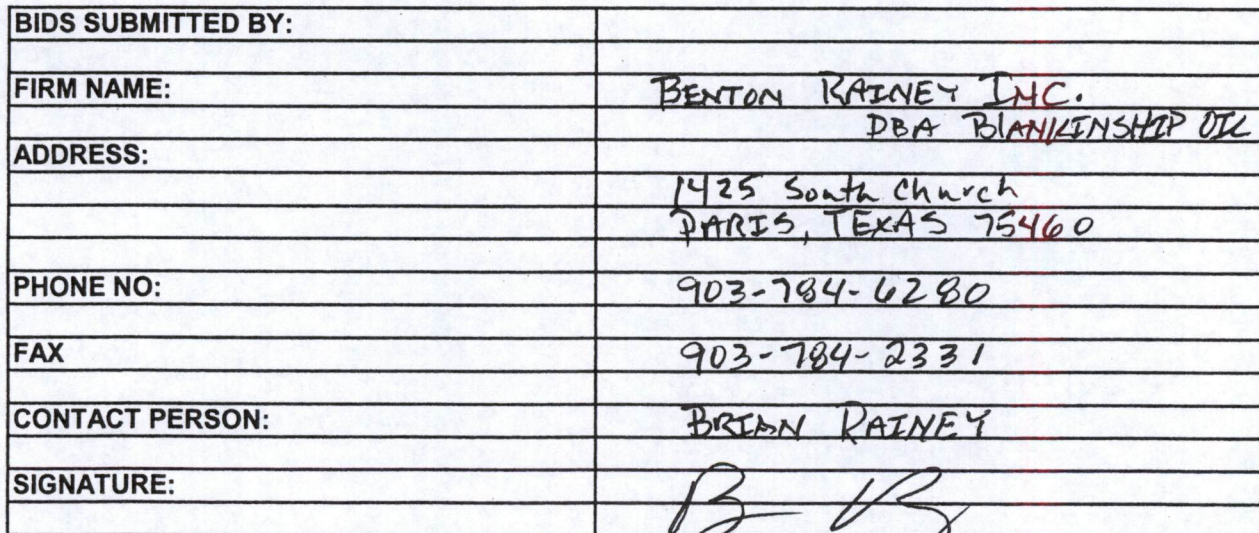 BIDS SUBMITTED BY:
FIRM NAME: BENTON RAINEY INC.
DBA BLANKINSHIP OIL
ADDRESS:
1425 South Church
PARIS, TEXAS 75460
PHONE NO: 903-784-6280
FAX 903-784-2331
CONTACT PERSON: BRIAN RAINEY
SIGNATURE: